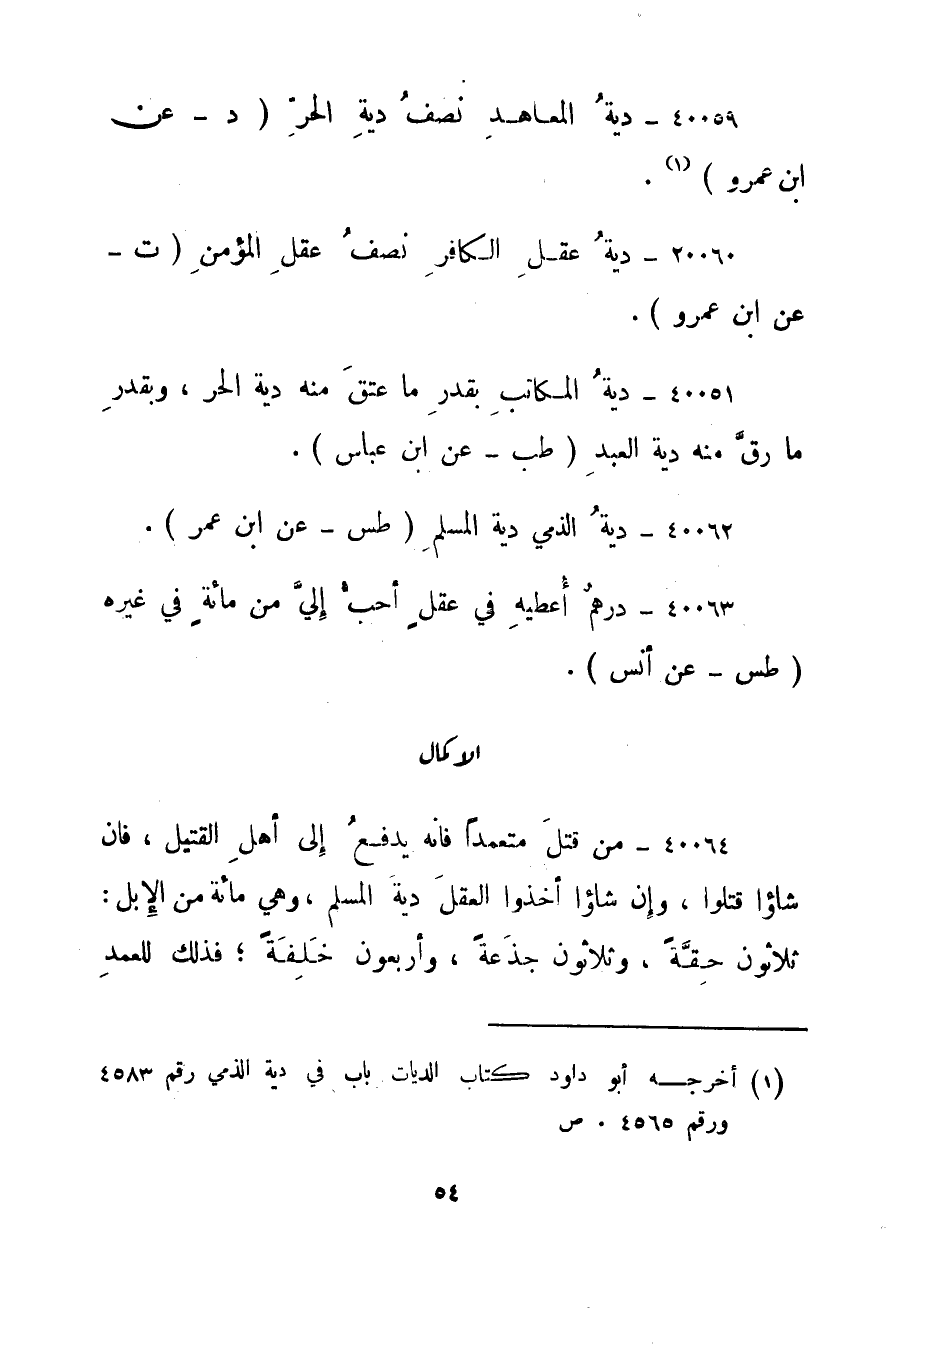 ٤٠٠٥٩ ـ ديةُ المعاهدِ نصفُ ديةِ الحرِّ ( د ـ عن
ابن عمرو ) (١) .
٢٠٠٦٠ ـ ديةُ عقلِ الكافرِ نصفُ عقلِ المؤمنِ ( ت ـ
عن ابن عمرو ) .
٤٠٠٥١ ـ ديةُ المكاتبِ بقدرِ ما عتقَ منه دية الحر ، وبقدرِ
ما رقَّ منه دية العبدِ ( طب ـ عن ابن عباس ) .
٤٠٠٦٢ ـ ديةُ الذمي دية المسلمِ ( طس ـ عن ابن عمر ) .
٤٠٠٦٣ ـ درهمٌ أُعطيهِ في عقلٍ أحبُّ إليَّ من مائةٍ في غيره
( طس ـ عن أنس ) .
الاكمال
٤٠٠٦٤ ـ من قتلَ متعمداً فانه يدفعُ إلى أهلِ القتيل ، فان
شاؤا قتلوا ، وإن شاؤا أخذوا العقلَ ديةَ المسلم ، وهي مائة من الإبل :
ثلاثون حِقَّةً ، وثلاثون جذَعةً ، وأربعون خَلِفَةً ؛ فذلك للعمدِ
(١) أخرجه أبو داود كتاب الديات باب في دية الذمي رقم ٤٥٨٣
ورقم ٤٥٦٥ . ص
٥٤